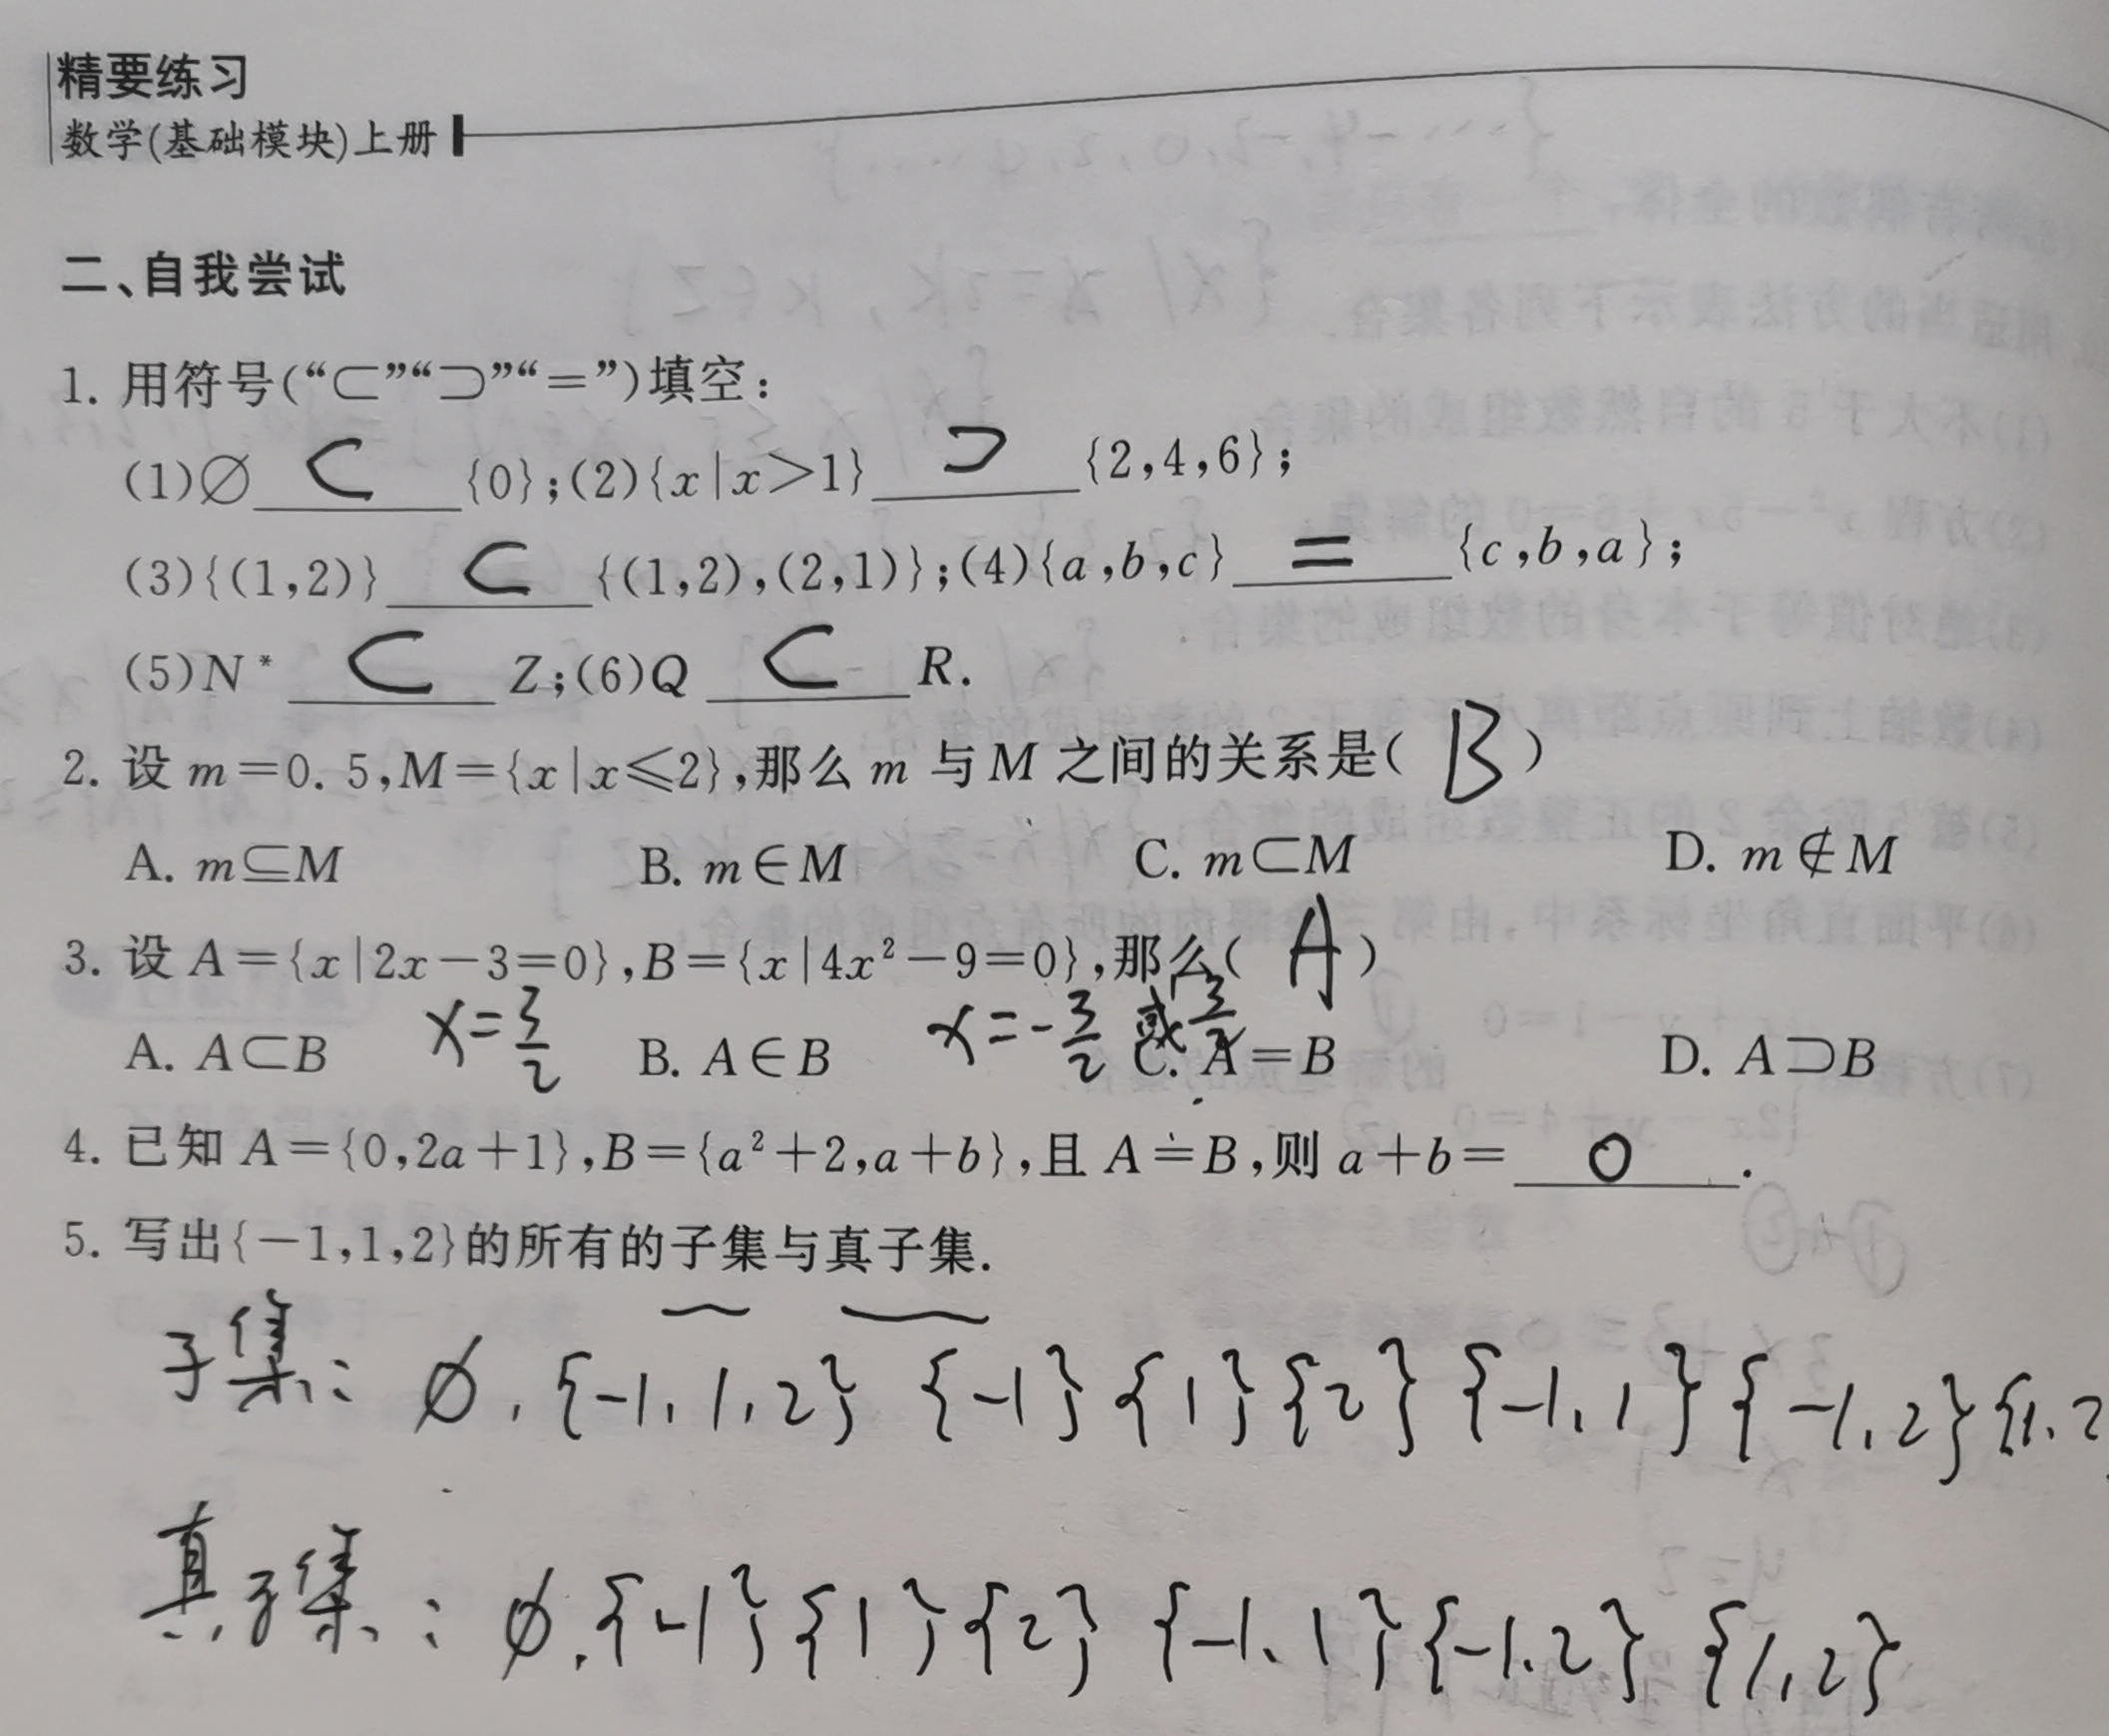 精要练习
数学(基础模块)上册
二、自我尝试
1. 用符号(“⊂”“⊃”“=”)填空:
(1)∅ ⊂ {0};(2){x|x>1} ⊃ {2,4,6};
(3){(1,2)} ⊂ {(1,2),(2,1)};(4){a,b,c} = {c,b,a};
(5)N* ⊂ Z;(6)Q ⊂ R.
2. 设 m=0.5,M={x|x≤2},那么 m 与 M 之间的关系是( B )
A. m⊆M B. m∈M C. m⊂M D. m∉M
3. 设 A={x|2x-3=0},B={x|4x²-9=0},那么( A )
x=3/2 x=-3/2 或 3/2
A. A⊂B B. A∈B C. A=B D. A⊃B
4. 已知 A={0,2a+1},B={a²+2,a+b},且 A=B,则 a+b= 0 .
5. 写出{-1,1,2}的所有的子集与真子集.
子集: ∅,{-1,1,2} {-1} {1} {2} {-1,1} {-1,2} {1,2
真子集: ∅,{-1} {1} {2} {-1,1} {-1,2} {1,2}